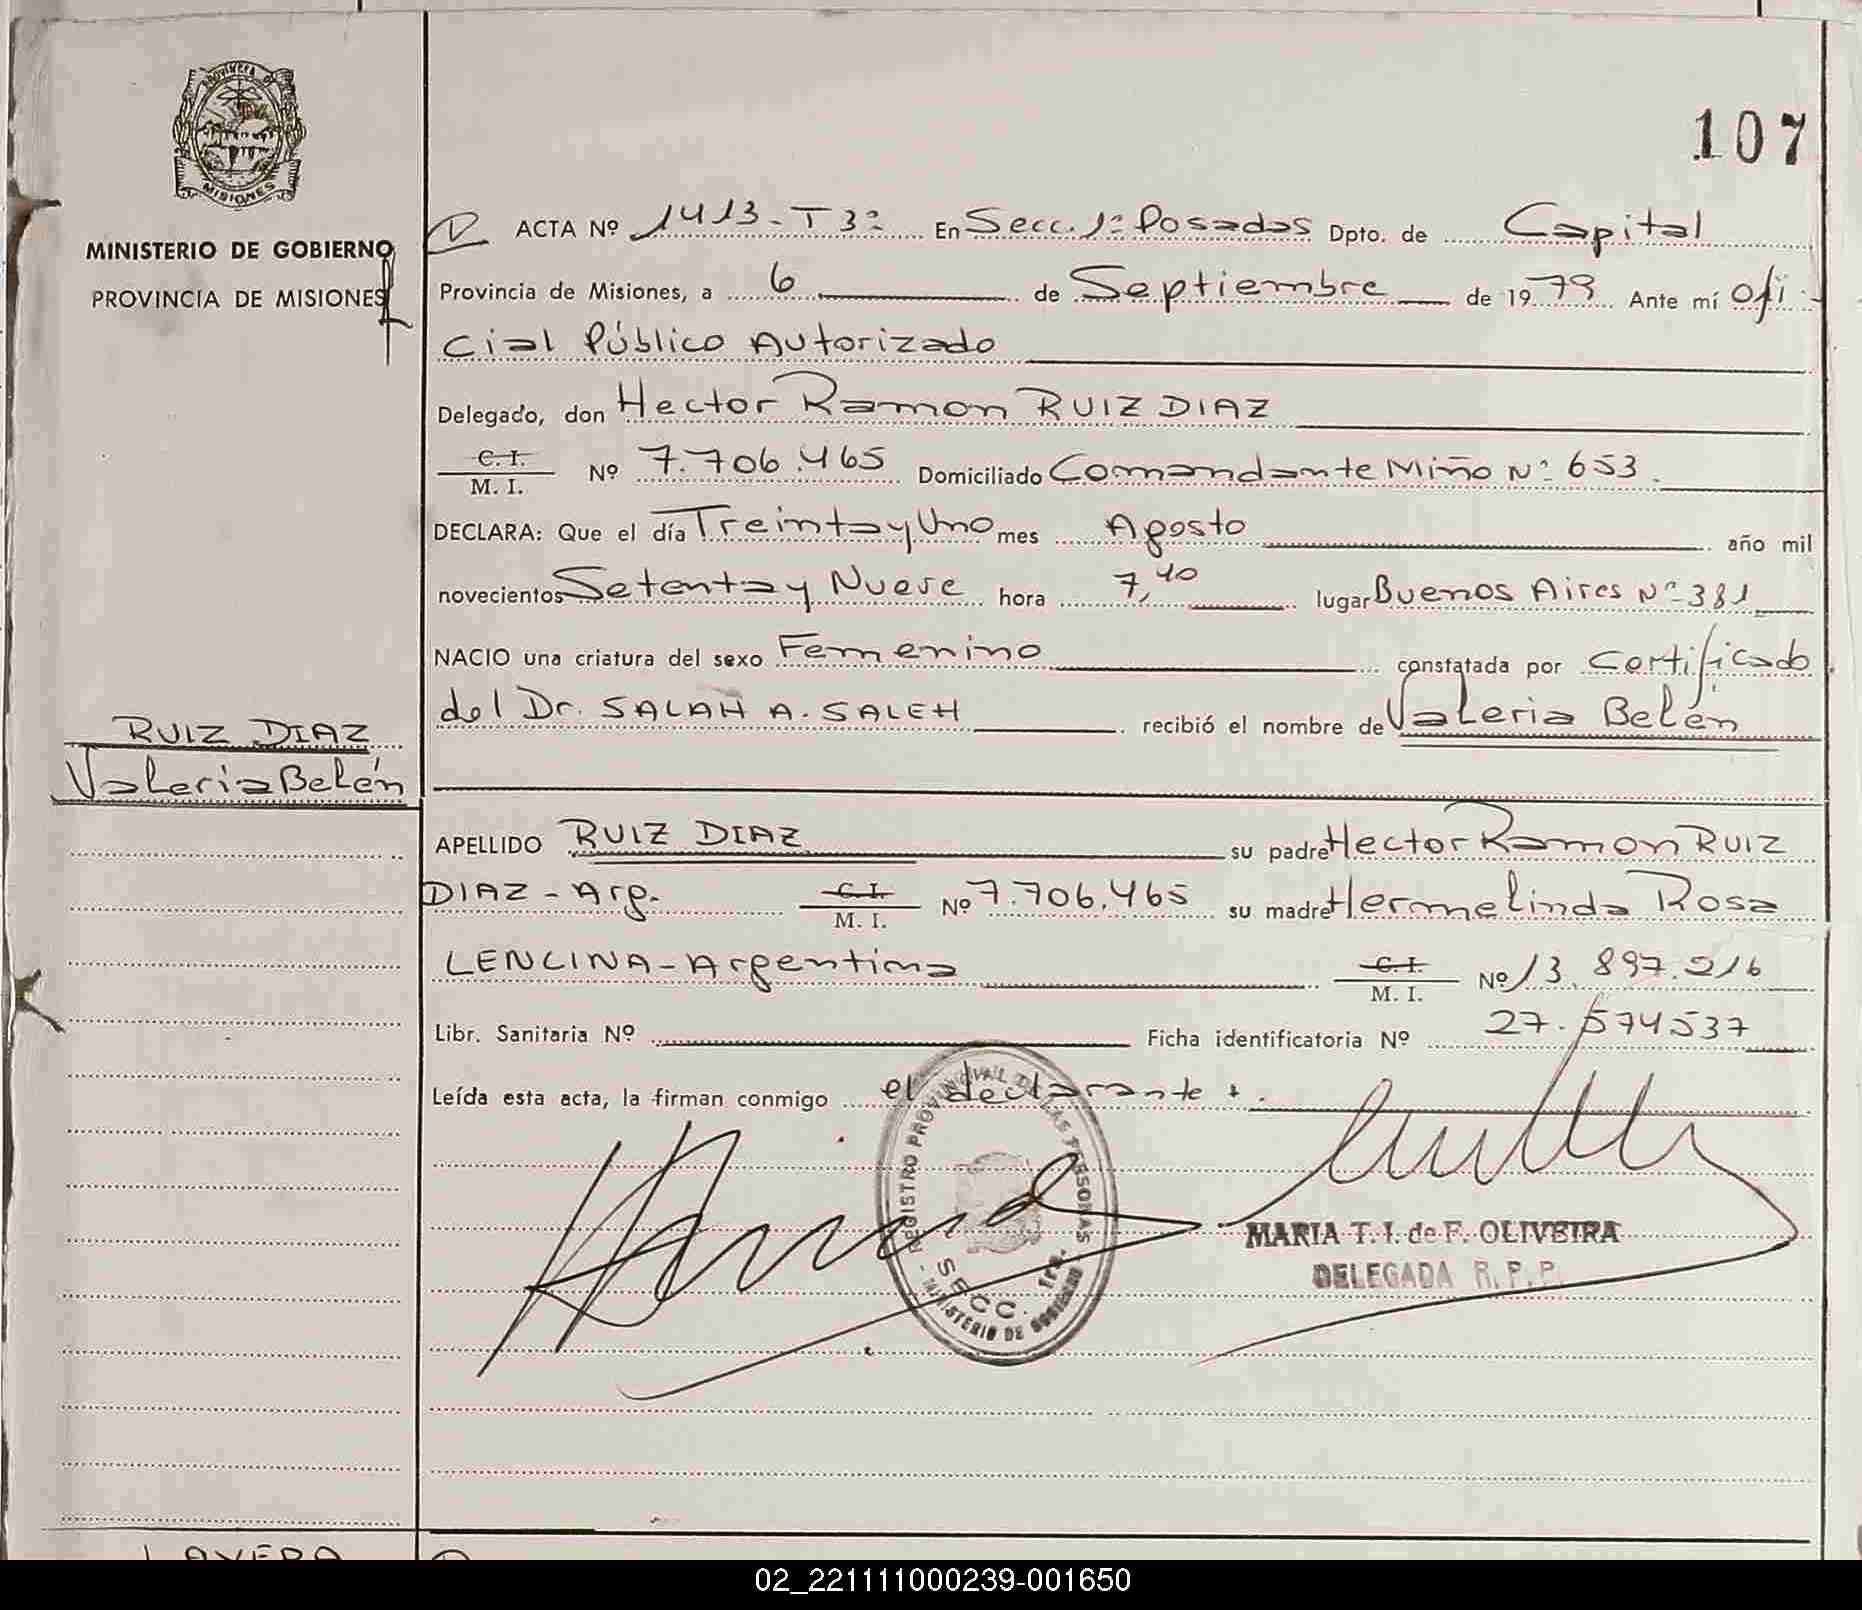 PROVINCIA DE
MISIONES
MINISTERIO DE GOBIERNO
PROVINCIA DE MISIONES
107
ACTA Nº 1413-T3º En Secc. 1º Posadas Dpto. de Capital
Provincia de Misiones, a 6 de Septiembre de 1979 Ante mí Ofi-
cial Público Autorizado
Delegado, don Hector Ramon RUIZ DIAZ
C. I.
M. I. Nº 7.706.465 Domiciliado Comandante Miño Nº 653.
DECLARA: Que el día Treinta y Uno mes Agosto año mil
novecientos Setenta y Nueve hora 7,40 lugar Buenos Aires Nº 381
NACIO una criatura del sexo Femenino constatada por Certificado
del Dr. SALAH A. SALEH recibió el nombre de Valeria Belén
RUIZ DIAZ
Valeria Belén
APELLIDO RUIZ DIAZ su padre Hector Ramon RUIZ
DIAZ - Arg. C. I.
M. I. Nº 7.706.465 su madre Hermelinda Rosa
LENCINA - Argentina C. I.
M. I. Nº 13.897.216
Libr. Sanitaria Nº Ficha identificatoria Nº 27.574537
Leída esta acta, la firman conmigo el declarante
REGISTRO PROVINCIAL DE LAS PERSONAS
SECC. 1ra.
- MINISTERIO DE GOBIERNO -
MARIA T. I. de F. OLIVEIRA
DELEGADA R. P. P.
LAVERA
02_221111000239-001650